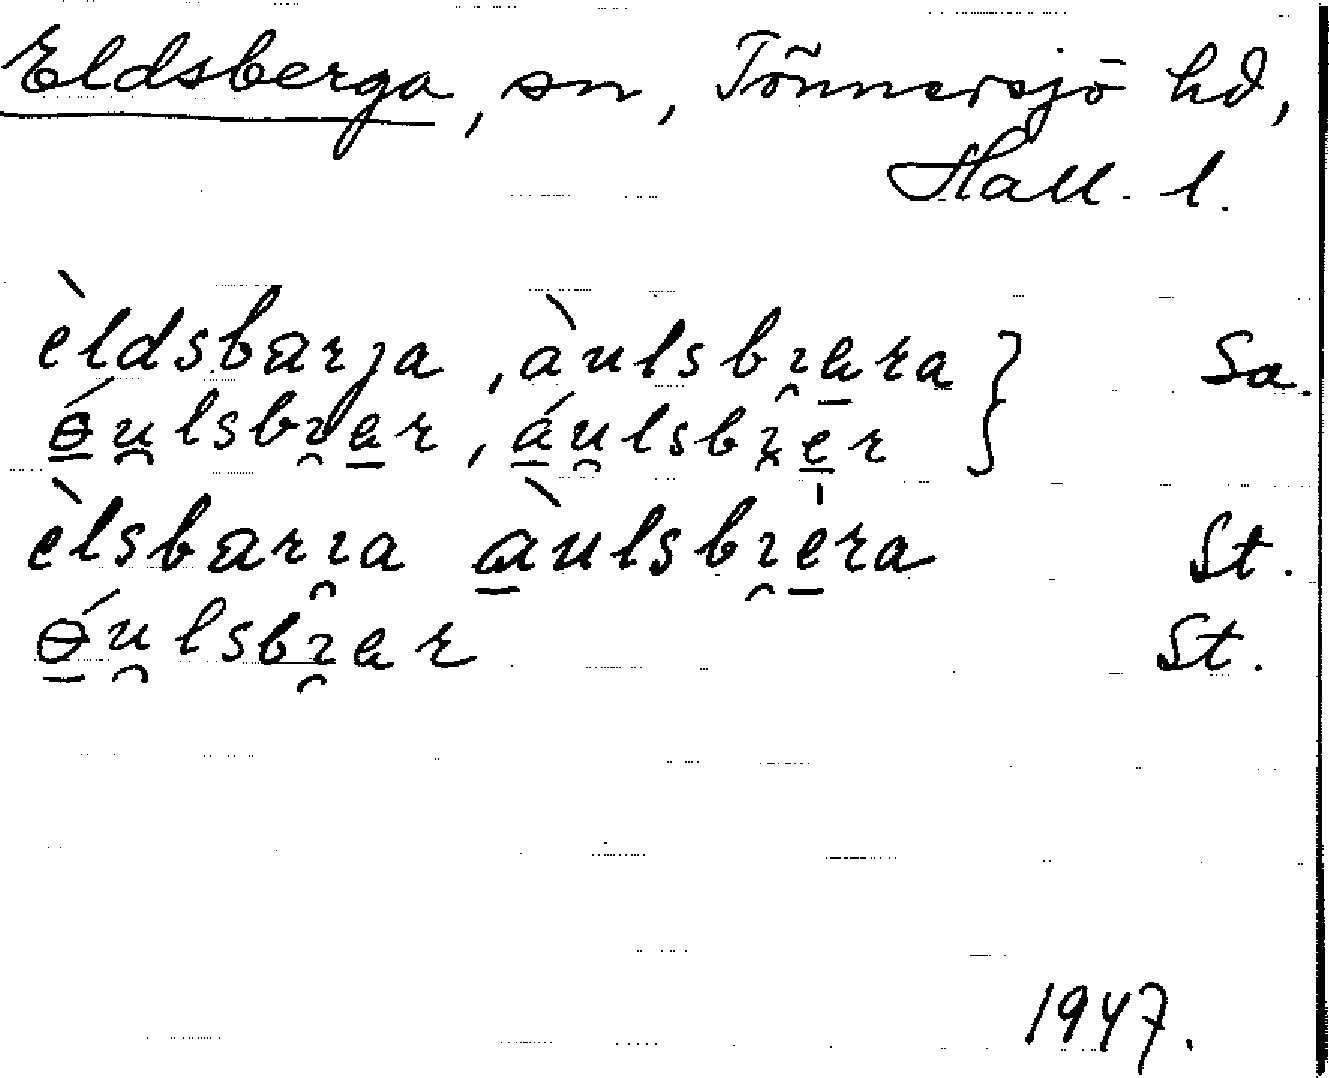 Eldsberga, sn, Tönnersjö hd,
Hall. l.
èldsbarja, àulsbɿ̯a̱ra } Sa.
ɵ̱́u̯lsbɿ̯a̱r, á̱u̯lsbɿ̯e̱r
èlsbarɿ̯a à̱ulsbɿ̯e̱ra St.
ɵ̱́u̯lsbɿ̯ar St.
1947.